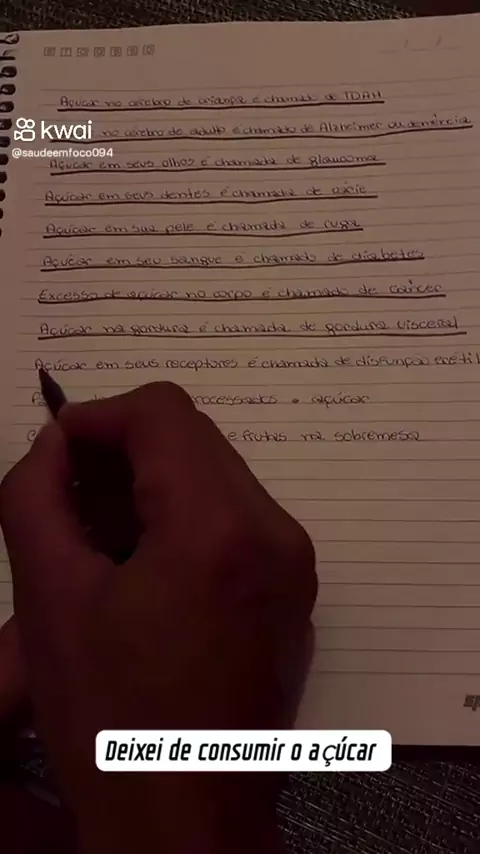 Açúcar no cérebro de criança é chamado de TDAH
kwai
no cérebro de adulto é chamado de Alzheimer ou demência
@saudeemfoco094
Açúcar em seus olhos é chamada de glaucoma
Açúcar em seus dentes é chamada de cárie
Açúcar em sua pele é chamada de ruga
Açúcar em seu sangue é chamado de diabetes
Excesso de açúcar no corpo é chamado de câncer
Açúcar na gordura é chamada de gordura visceral
Açúcar em seus receptores é chamada de disfunção erétil
açúcar
e frutas na sobremesa
Deixei de consumir o açúcar